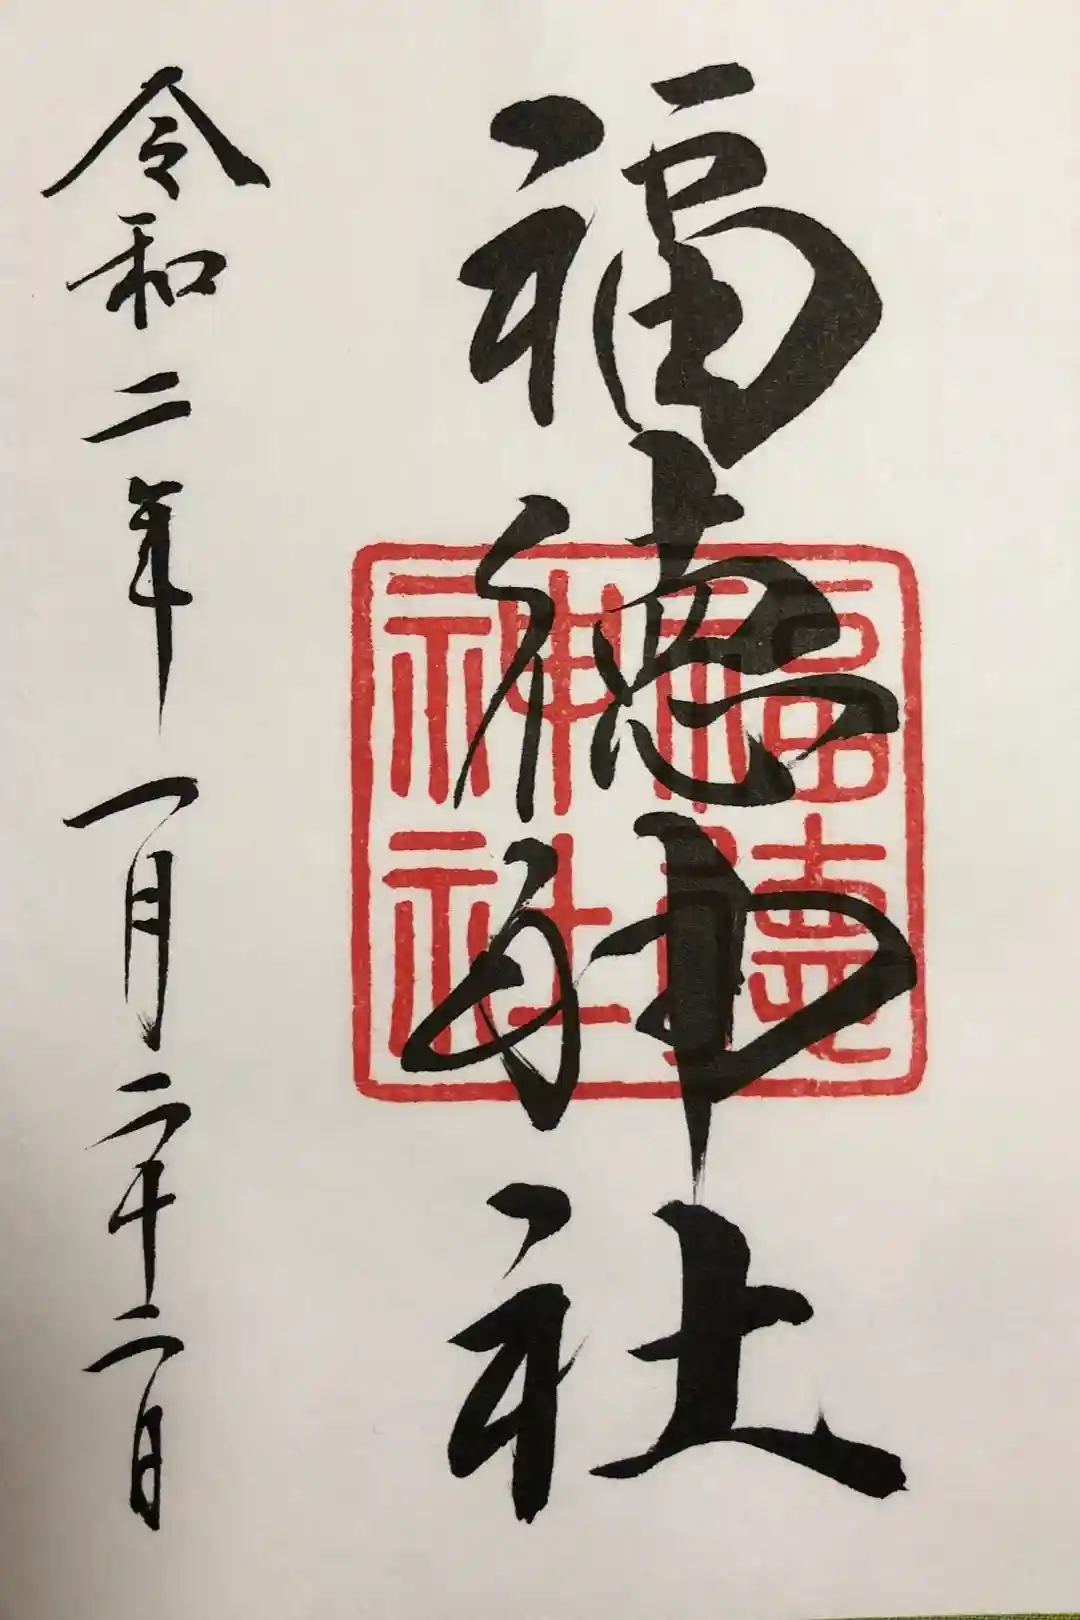 福徳神社
福徳
神社
令和二年一月二十二日